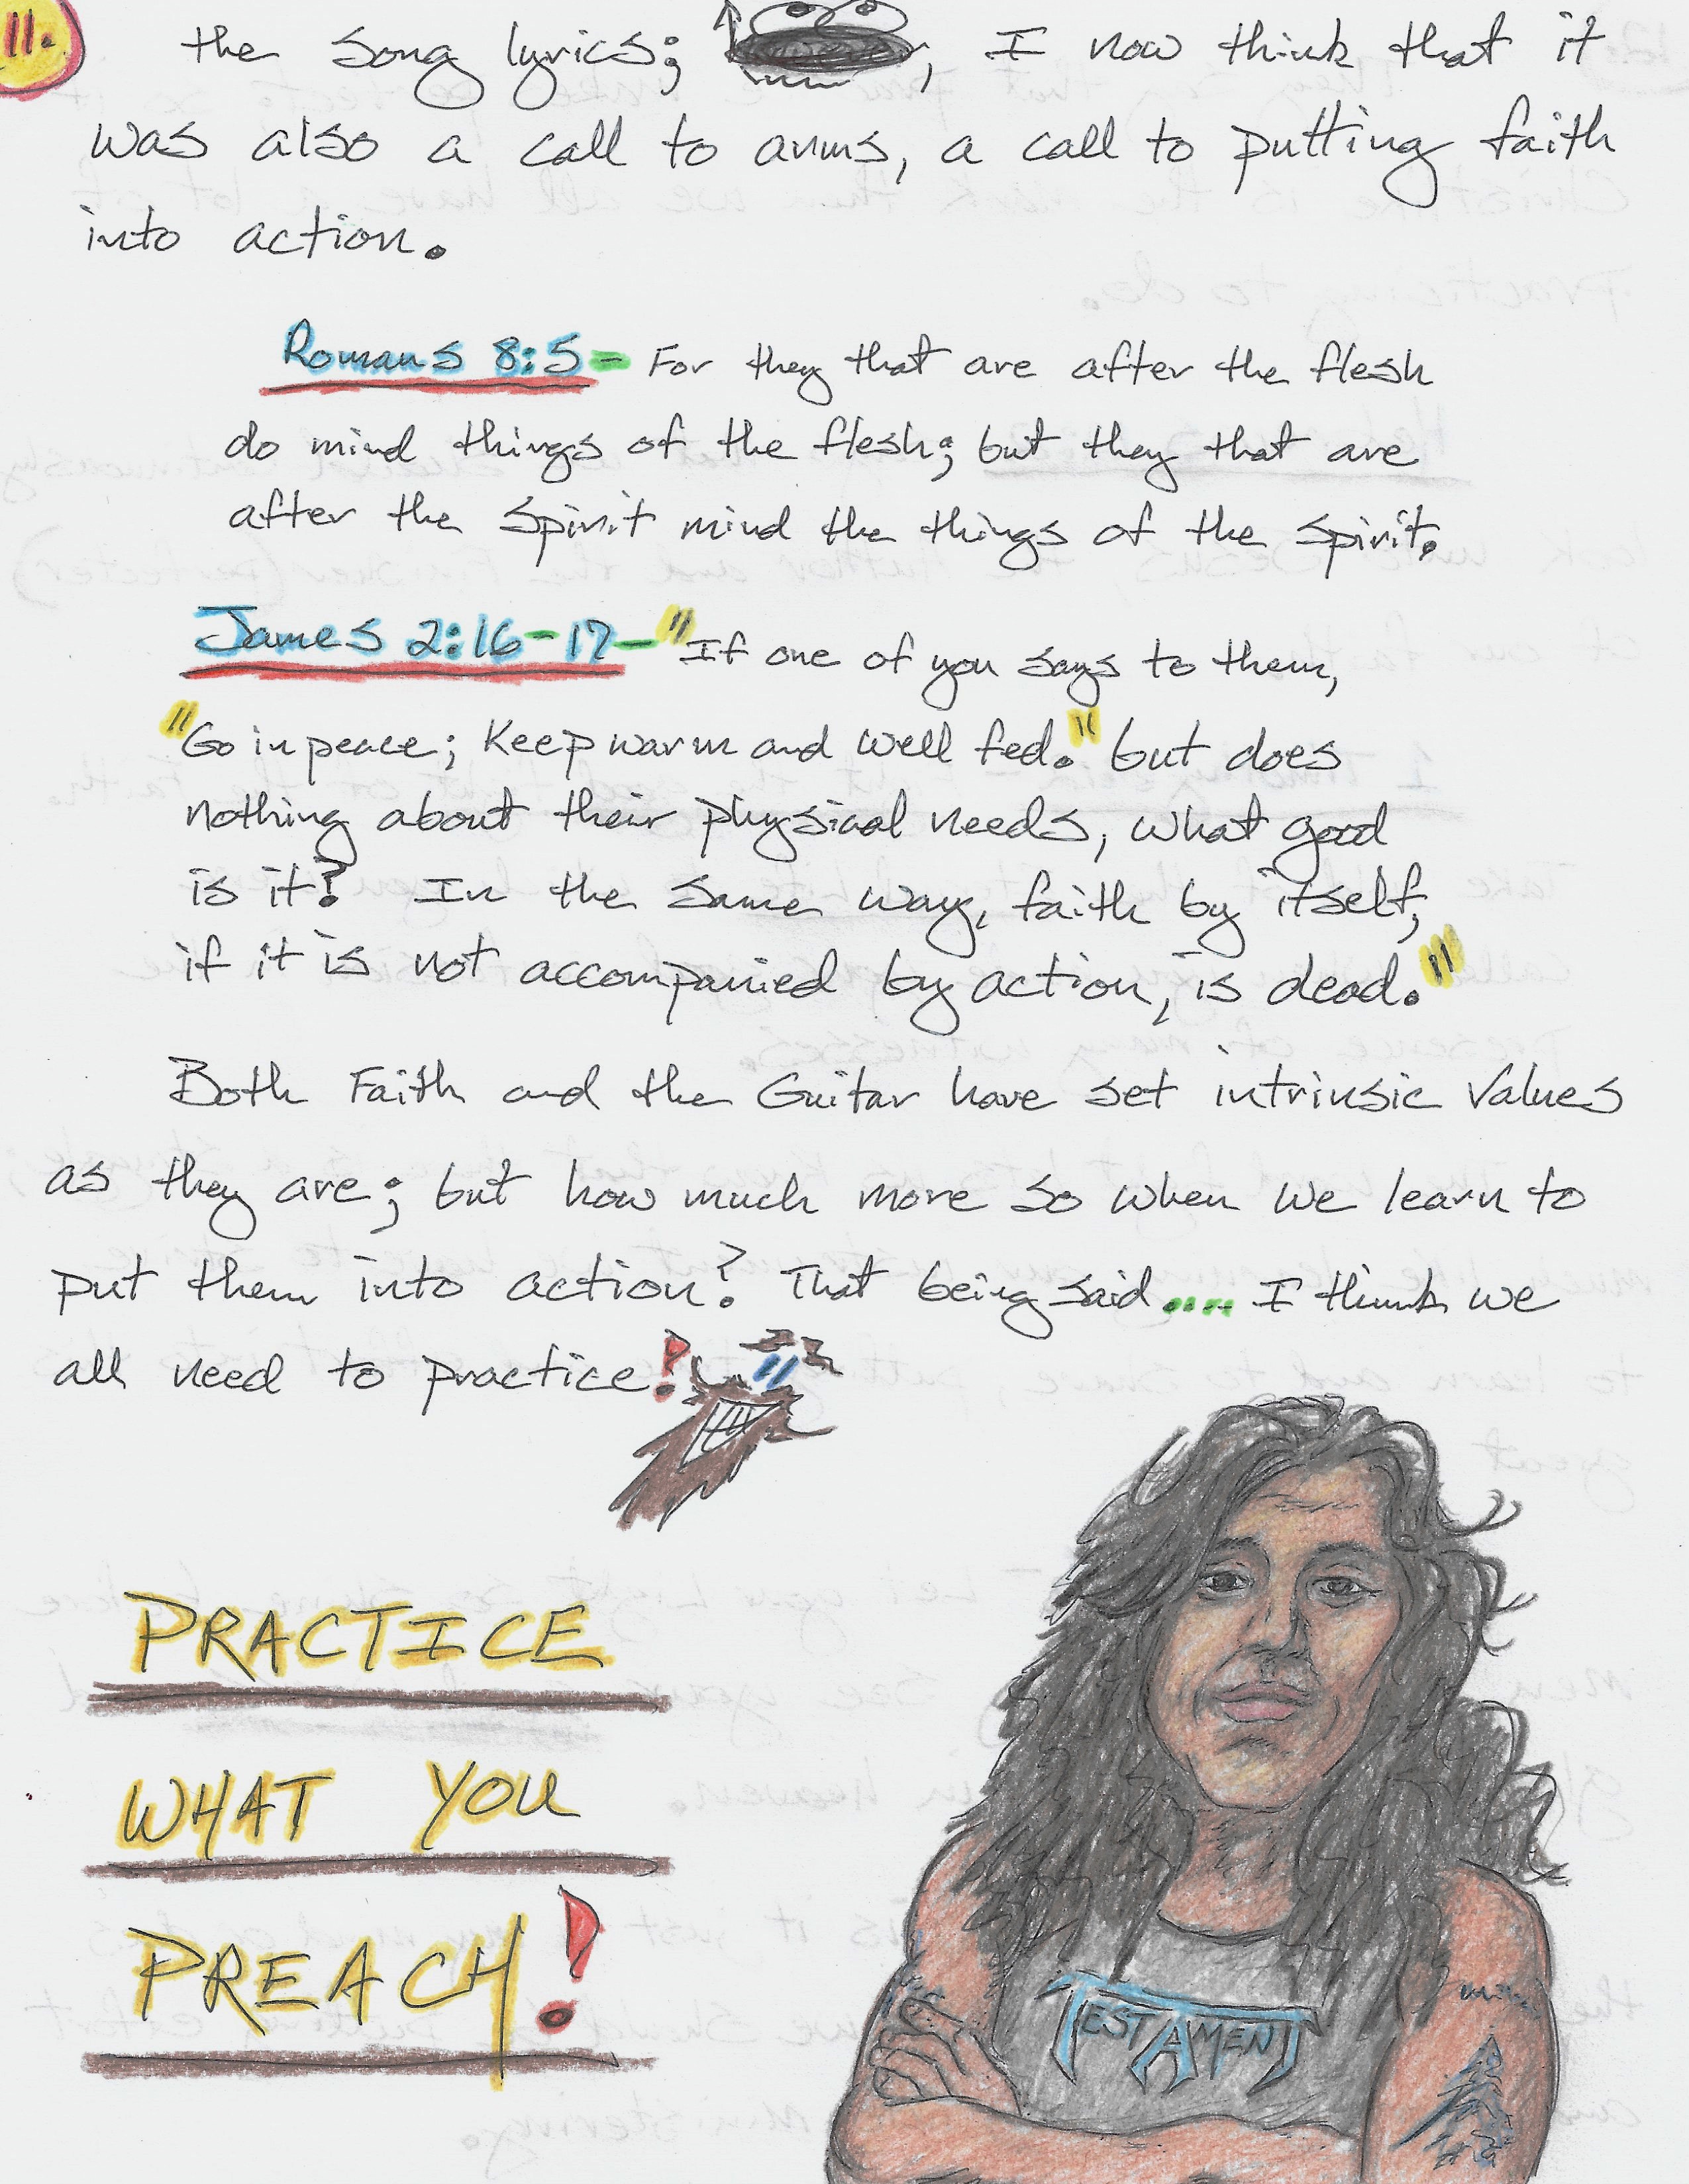 11.
the song lyrics; , I now think that it
was also a call to arms, a call to putting faith
into action.
Romans 8:5- For they that are after the flesh
do mind things of the flesh; but they that are
after the Spirit mind the things of the spirit.
James 2:16-17-"If one of you says to them,
"Go in peace; Keep warm and well fed." but does
nothing about their physical needs, what good
is it? In the same way, faith by itself,
if it is not accompanied by action, is dead."
Both Faith and the Guitar have set intrinsic Values
as they are; but how much more so when we learn to
put them into action? That being said.... I think we
all need to practice!
PRACTICE
WHAT YOU
PREACH!
TESTAMENT